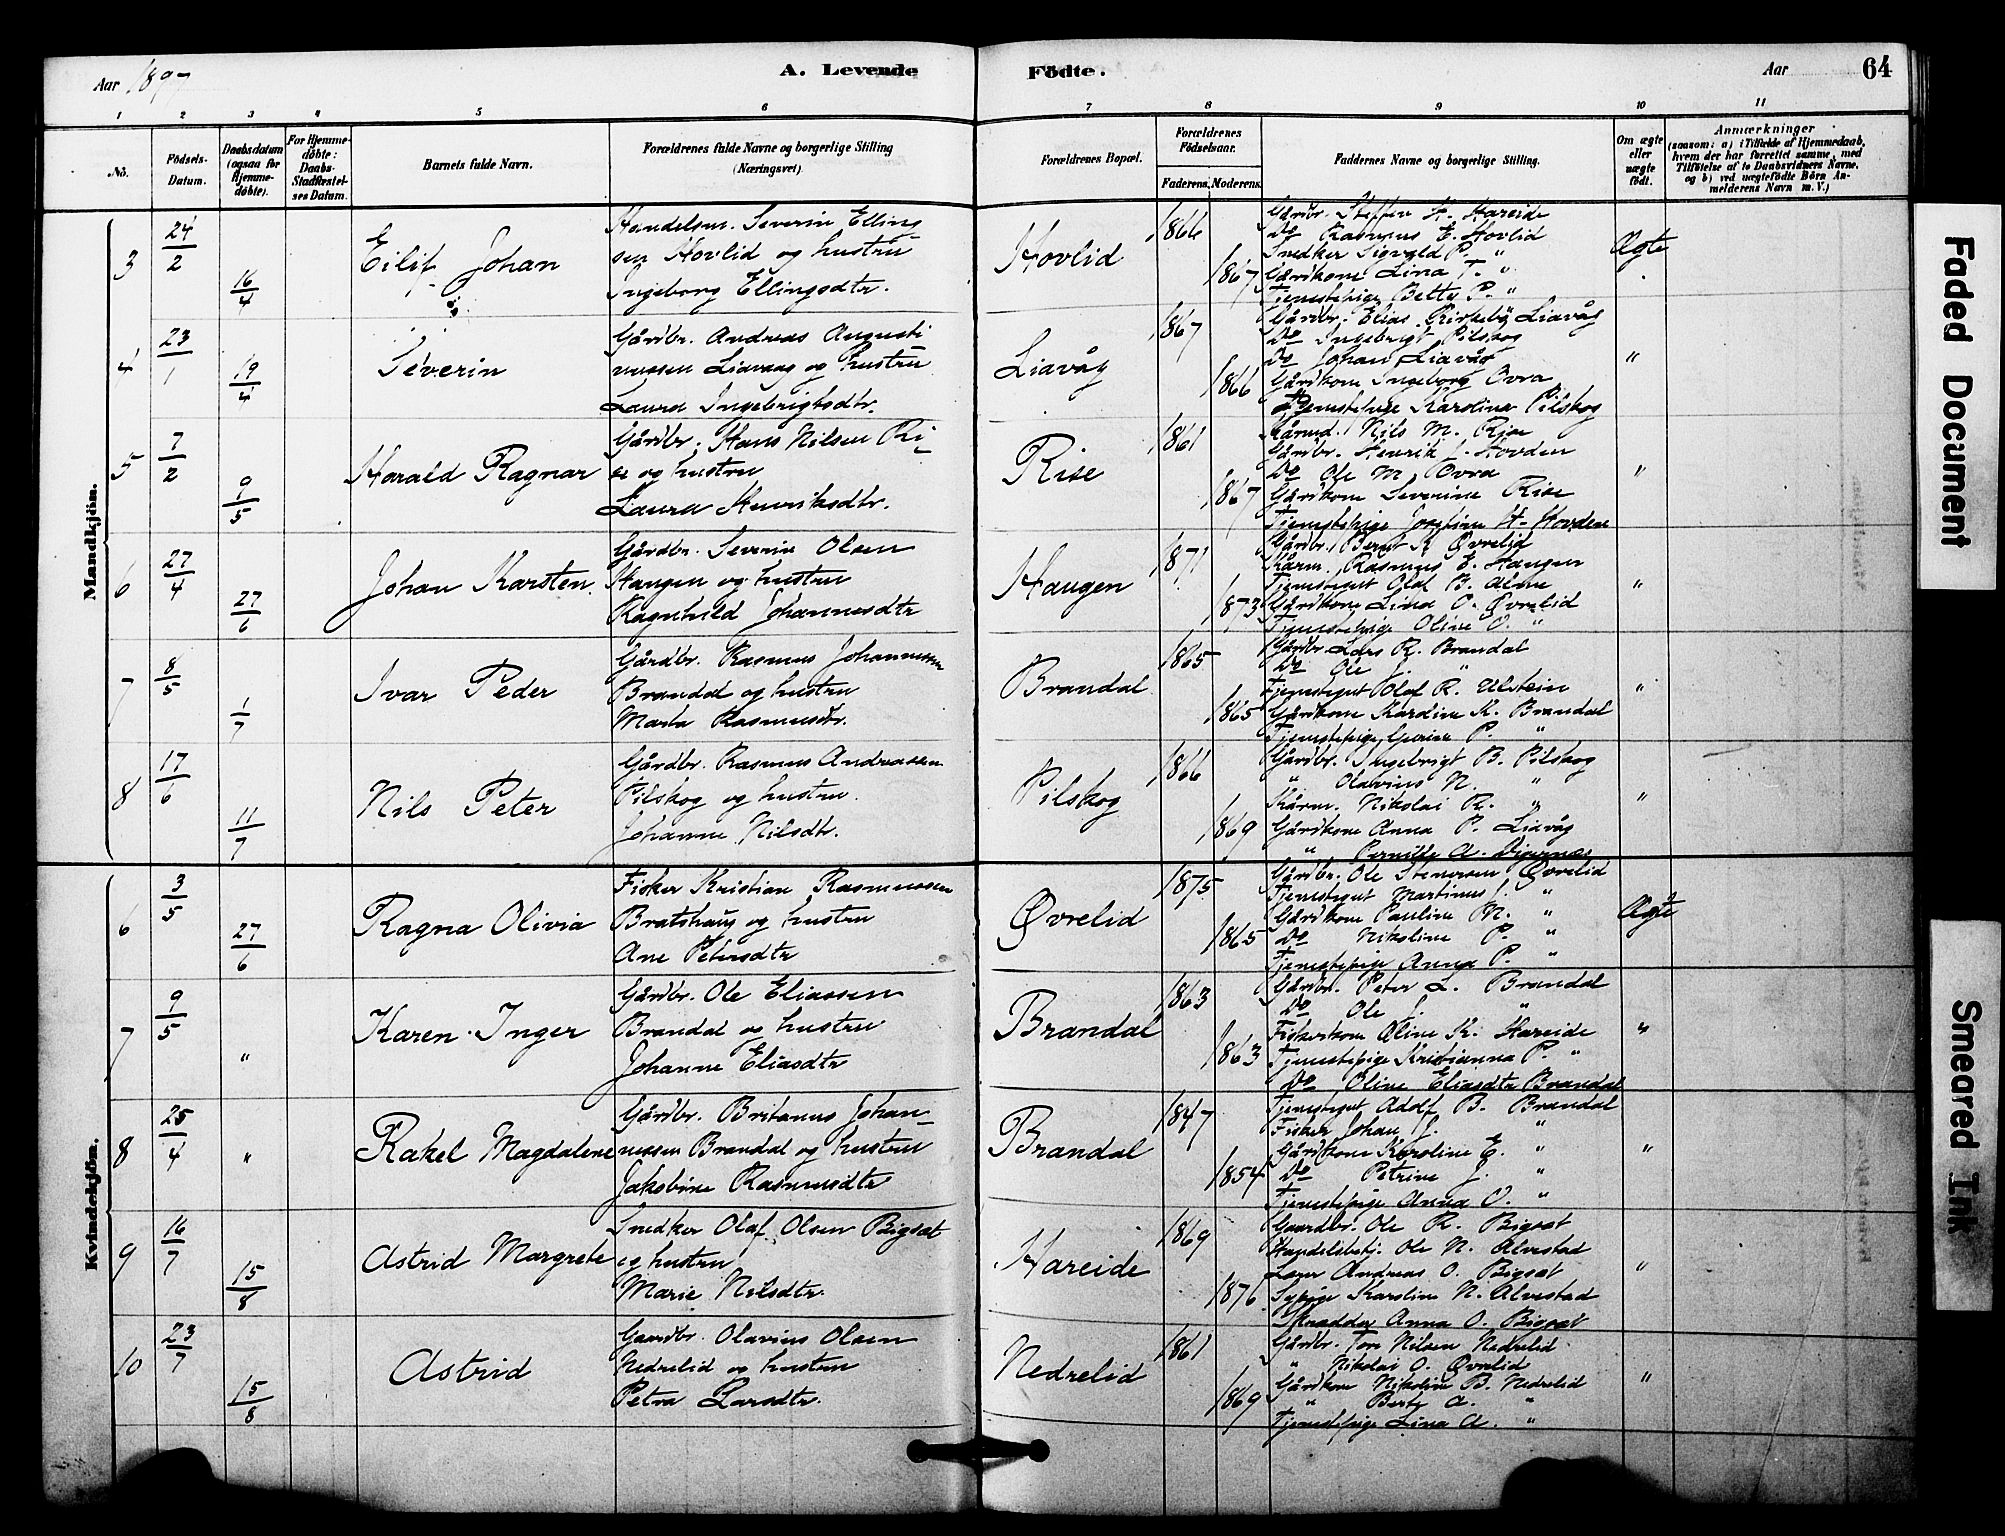 Aar 1897
A. Levende
Födte.
Aar
64
1 2 3 4 5 6 7 8 9 10 11
No.
Födsels-Datum.
Daabsdatum (ogsaa for Hjemmedöbte).
For Hjemmedöbte: Daabs-Stadfæstelses Datum.
Barnets fulde Navn.
Forældrenes fulde Navne og borgerlige Stilling (Næringsvei)
Forældrenes Bopæl.
Forældrenes Födselsaar.
Faderens. Moderens.
Faddernes Navne og borgerlige Stilling.
Om ægte eller uægte födt.
Anmærkninger
(saasom: a) i Tilfælde af Hjemmedaab, hvem der har forrettet samme, med Tilföielse af to Daabsvidners Navne, og b) ved uægtefödte Börn Anmelderens Navn m. V.)
Mandkjön.
3 24/2 16/4 Eilif Johan
Handelsm. Severin Elling-
sen Hovlid og hustru
Ingeborg Ellingsdtr.
Hovlid 1866 1867
Gårdbr. Steffen H. Hareide
Do Rasmus E. Hovlid
Snedker Sigvald P. "
Gårdkone Lina T. "
Tjenestepige Bette P. "
Ægte
4 23/1 19/4 Severin
Gårdbr. Andreas Augusti
nussen Liavaag og hustru
Laura Ingebrigtsdtr.
Liavåg 1867 1866
Gårdbr. Elias Kirkebö Liavåg
Do Ingebrigt Pilskog
Do Johan Liavåg
Gårdkone Ingeborg Ovra
Tjenestepige Karoline Pilskog
"
5 7/2 9/5 Harald Ragnar
Gårdbr. Hans Nilsen Ri-
se og hustru
Laura Henriksdtr.
Rise 1861 1867
Kårmd. Nils M. Rise
Gårdbr. Henrik J. Hovden
Do Ole M. Ovra
Gårdkone Severine Rise
Tjenestepige Josefine H. Hovden
"
6 27/4 27/6 Johan Karsten
Gårdbr. Severin Olsen
Haugen og hustru
Ragnhild Johannesdtr
Haugen 1871 1873
Gårdbr. Bernt K. Øvrelid
Kårm. Rasmus E. Haugen
Tjenestegut Olaf B. Alme
Gårdkone Lina O. Øvrelid
Tjenestepige Oline O. "
"
7 8/5 1/7 Ivar Peder
Gårdbr. Rasmus Johannessen
Brandal og hustru
Marta Rasmusdtr.
Brandal 1865 1865
Gårdbr Lars R. Brandal
Do Ole J. "
Tjenestegut Olaf R. Ulstein
Gårdkone Kardine K. Brandal
Tjenestepige Gurine P. "
"
8 17/6 11/7 Nils Peter
Gårdbr. Rasmus Andreassen
Pilskog og hustru
Johanne Nilsdtr.
Pilskog 1866 1869
Gårdbr. Ingebrigt B. Pilskog
" Olavius N. "
Kårm. Nikolai R. "
Gårdkone Anna P. Liavåg
" Pernille A.
"
Kvindekjön.
6 3/5 27/6 Ragna Olivia
Fisker Kristian Rasmussen
Bratshaug og hustru
Ane Petersdtr
Øvrelid 1875 1865
Gårdbr. Ole Stenersen Øvrelid
Tjenestegut Martinus J. "
Gårdkone Pauline M. "
Do Nikoline P. "
Tjenestepige Anna P. "
Ægte
7 9/5 " Karen Inger
Gårdbr. Ole Eliassen
Brandal og hustru
Johanne Eliasdtr
Brandal 1863 1863
Gårdbr. Peter L. Brandal
Do Ole J. "
Fiskerkone Oline K. Hareide
Tjenestepige Kristianna P. "
Do Oline Eliasdtr Brandal
"
8 25/4 " Rakel Magdalene
Gårdbr. Britanus Johan-
nessen Brandal og hustru
Jakobine Rasmusdtr
Brandal 1847 1854
Tjenestegut Adolf B. Brandal
Fisker Johan J. "
Gårdkone Karoline E. "
Do Petrine J. "
Tjenestepige Anna O. "
"
9 16/7 15/8 Astrid Margrete
Snedker Olaf Olsen Bigsæt
og hustru
Marie Nilsdtr.
Hareide 1869 1876
Gaardbr. Ole R. Bigsæt
Handelsbetj. Ole N. Alvestad
Lærer Andreas O. Bigsæt
Sypige Karoline N. Alvestad
Skrædder Anna O. Bigsæt
"
10 23/7 15/8 Astrid
Gaardbr. Olavius Olsen
Nedrelid og hustru
Petra Larsdtr.
Nedrelid 1861 1869
Gårdbr. Tore Nilsen Nedrelid
" Nikolai O. Øvrelid
Gårdkone Nikoline B. Nedrelid
" Berte A. "
Tjenestepige Lina A. "
"
Faded Document
Smeared Ink